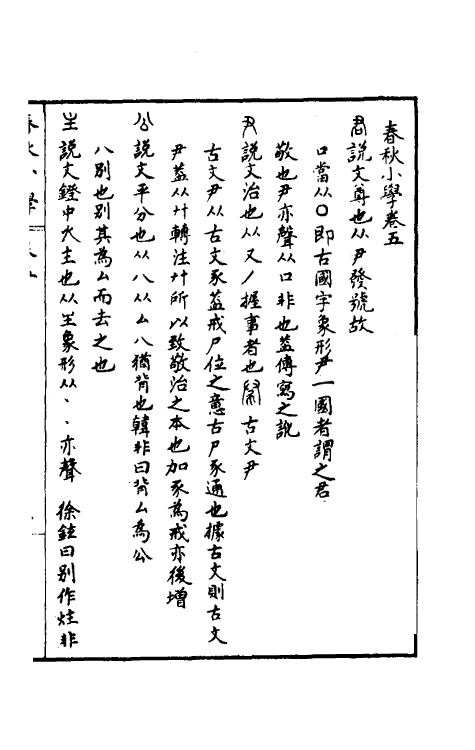 春秋小學卷五
君說文尊也从尹發號故
口當从〇即古國字象形尹一國者謂之君
敬也尹亦聲从口非也蓋傳寫之訛
尹說文治也从又丿握事者也 古文尹
古文尹从古文豕蓋戒尸位之意古尸豕通也據古文則古文
尹蓋从廾轉注廾所以致敬治之本也加豕為戒亦後增
公說文平分也从八从厶八猶背也韓非曰背厶為公
八別也別其為厶而去之也
主說文鐙中火主也从𡈼象形从丶丶亦聲 徐鉉曰別作炷非
春秋小學